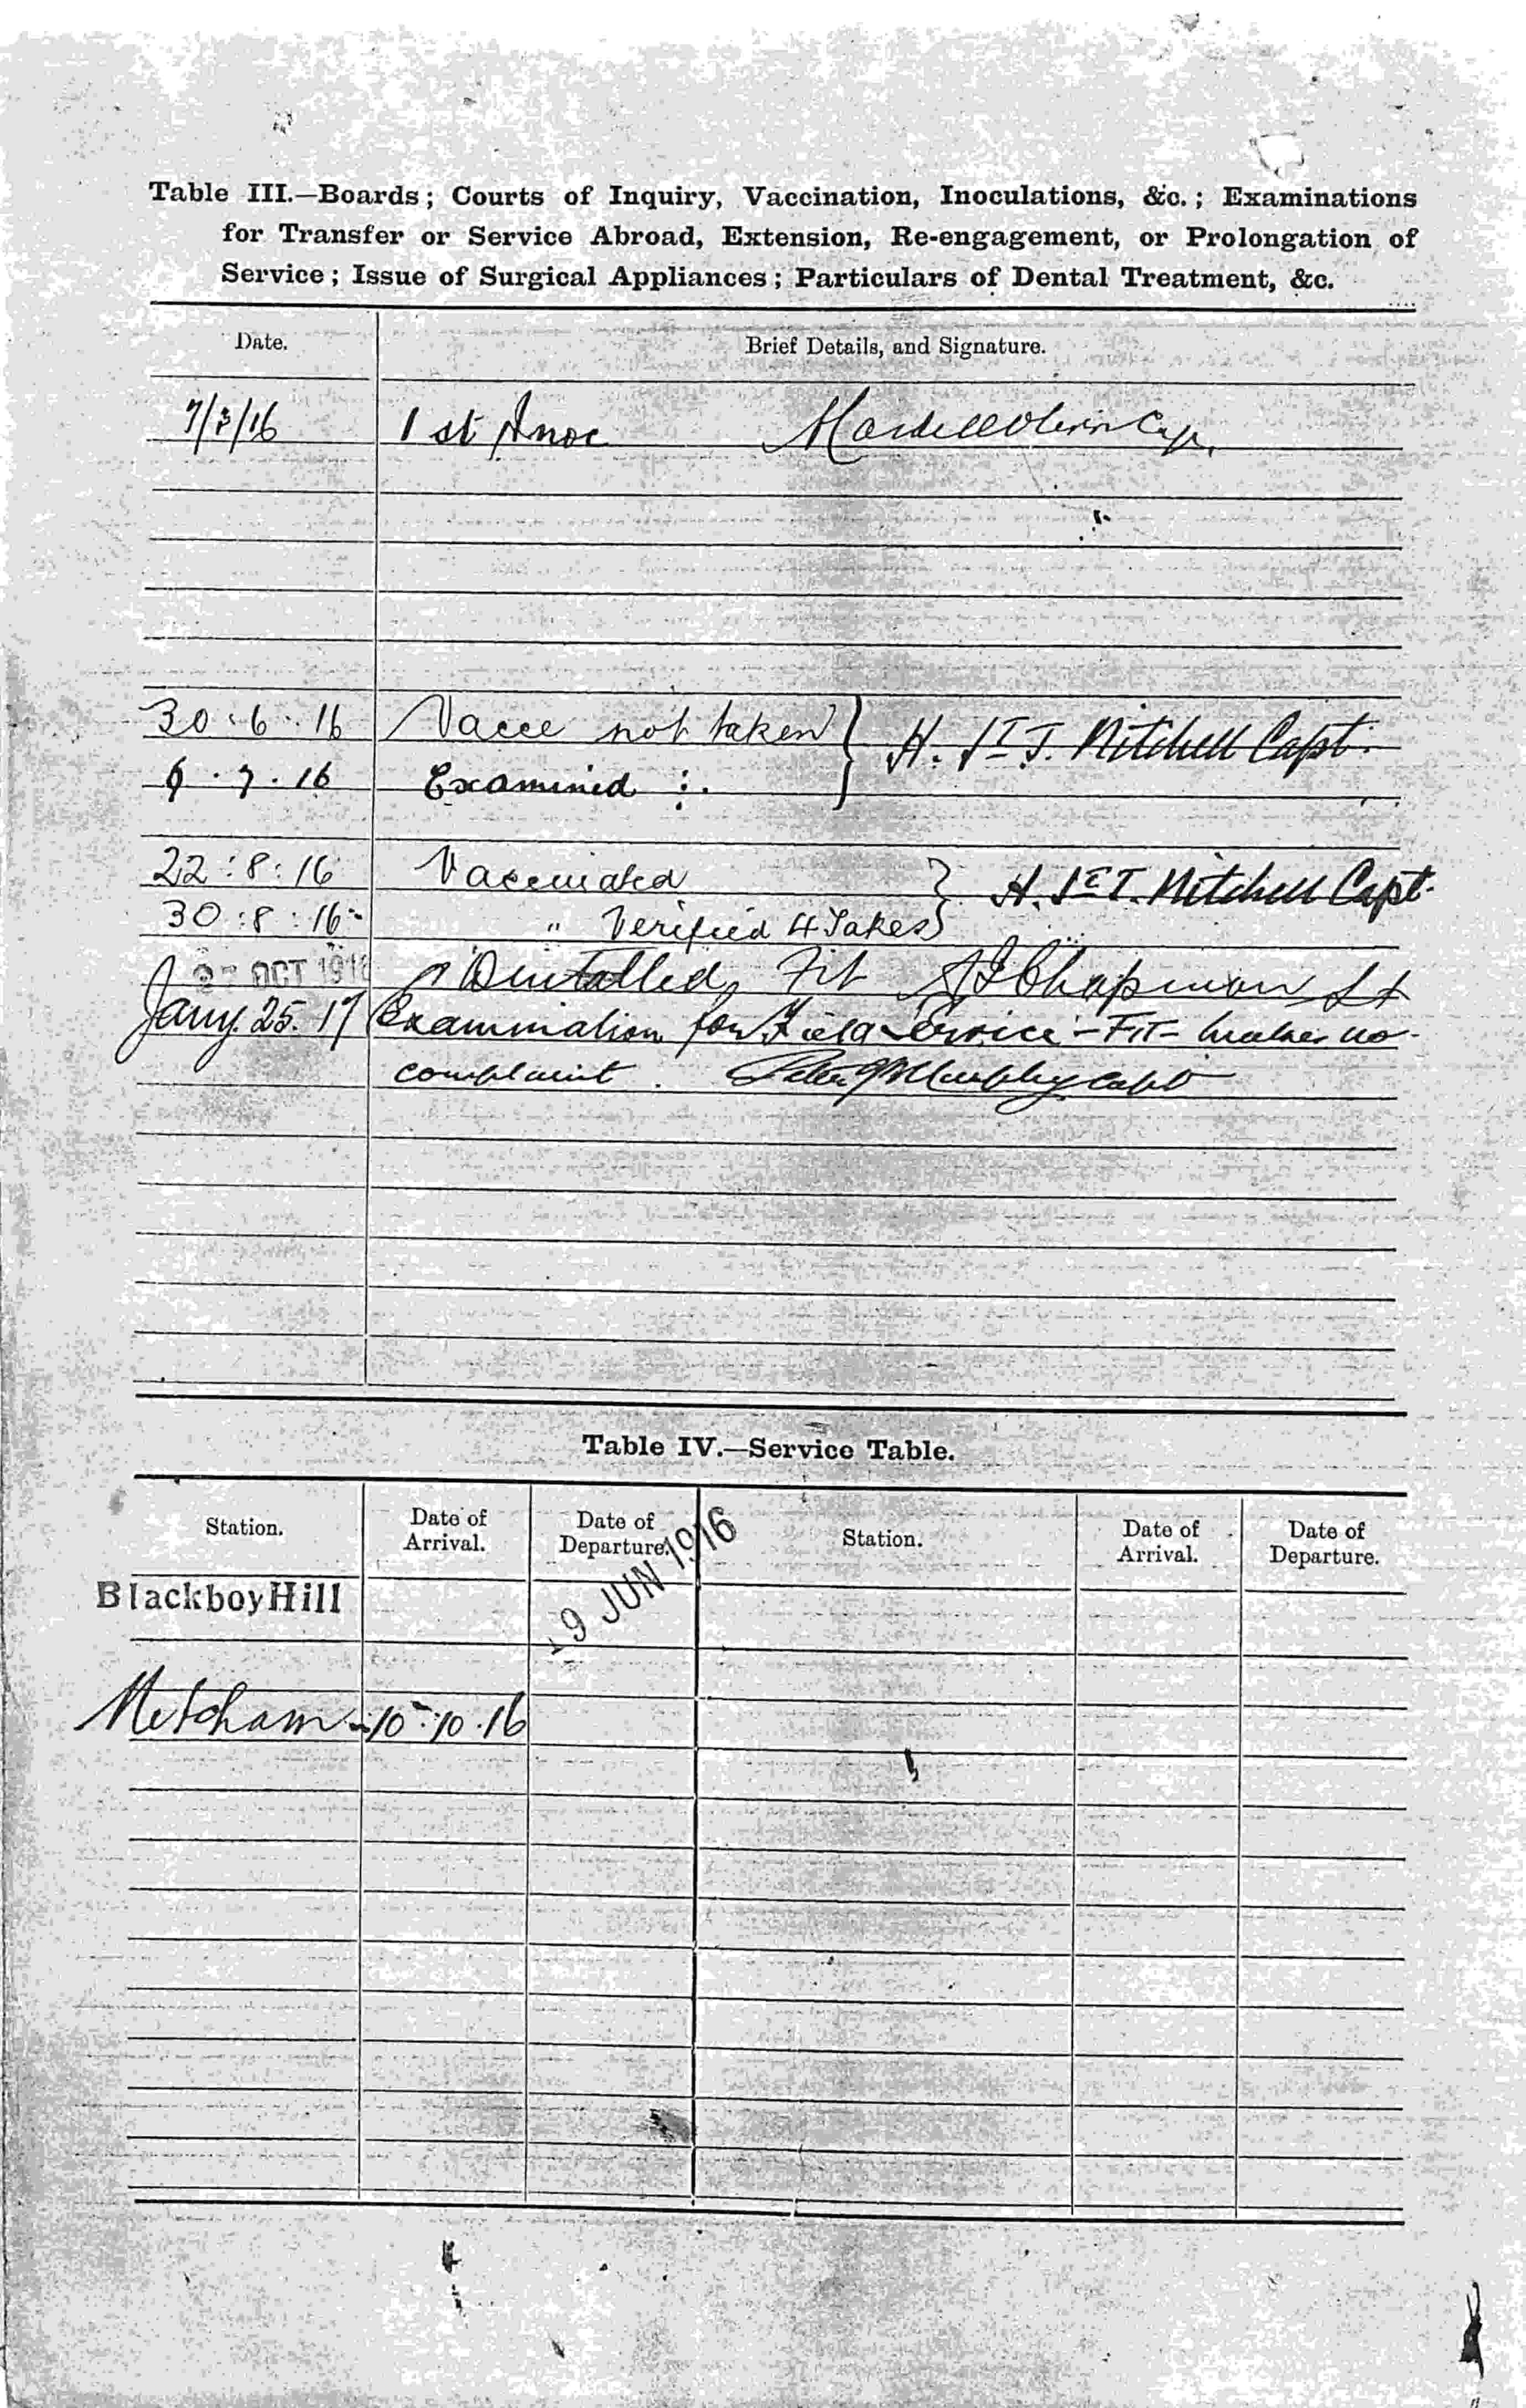 Table III.—Boards; Courts of Inquiry, Vaccination, Inoculations, &c.; Examinations
for Transfer or Service Abroad, Extension, Re-engagement, or Prolongation of
Service; Issue of Surgical Appliances; Particulars of Dental Treatment, &c.
Date. Brief Details, and Signature.
1st Inoc
30.6.16 Vacce not taken } H. St J. Mitchell Capt.
7.16 Examined :.
22:8:16 Vaccinated } H. St J. Mitchell Capt.
30:8:16 " Verified 4 Takes
OCT 1916 Fit Chapman Lt
Jany. 25. 17 Examination for Field Service - FIT - makes no
complaint. Murphy Capt
Table IV.—Service Table.
Station. Date of Arrival. Date of Departure. Station. Date of Arrival. Date of Departure.
Blackboy Hill 9 JUN 1916
Mitcham - 10.10.16